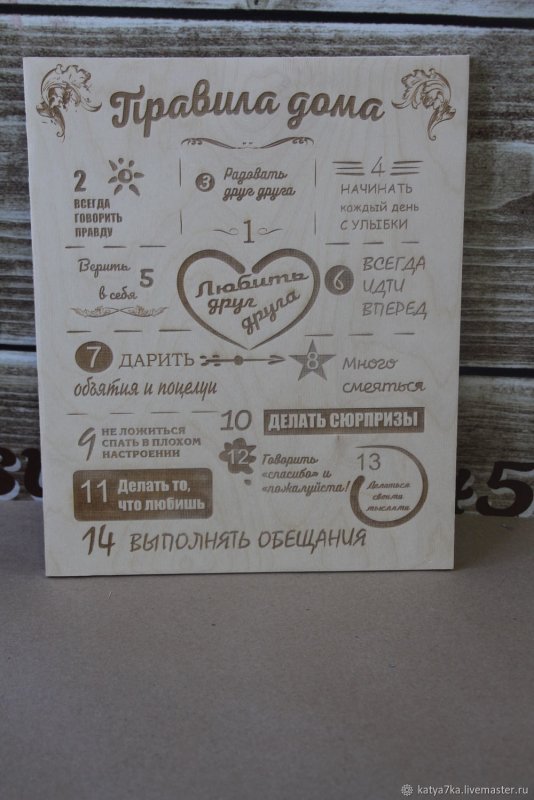 Правила дома
1
Любить
друг
друга
2
ВСЕГДА
ГОВОРИТЬ
ПРАВДУ
3 Радовать
друг друга
4
НАЧИНАТЬ
каждый день
С УЛЫБКИ
Верить 5
в себя
6 ВСЕГДА
ИДТИ
ВПЕРЕД
7 ДАРИТЬ
объятия и поцелуи
8 Много
смеяться
9 НЕ ЛОЖИТЬСЯ
СПАТЬ В ПЛОХОМ
НАСТРОЕНИИ
10 ДЕЛАТЬ СЮРПРИЗЫ
11 Делать то,
что любишь
12 Говорить
«спасибо» и
«пожалуйста!
13
Делиться
своими
мыслями
14 ВЫПОЛНЯТЬ ОБЕЩАНИЯ
5
katya7ka.livemaster.ru